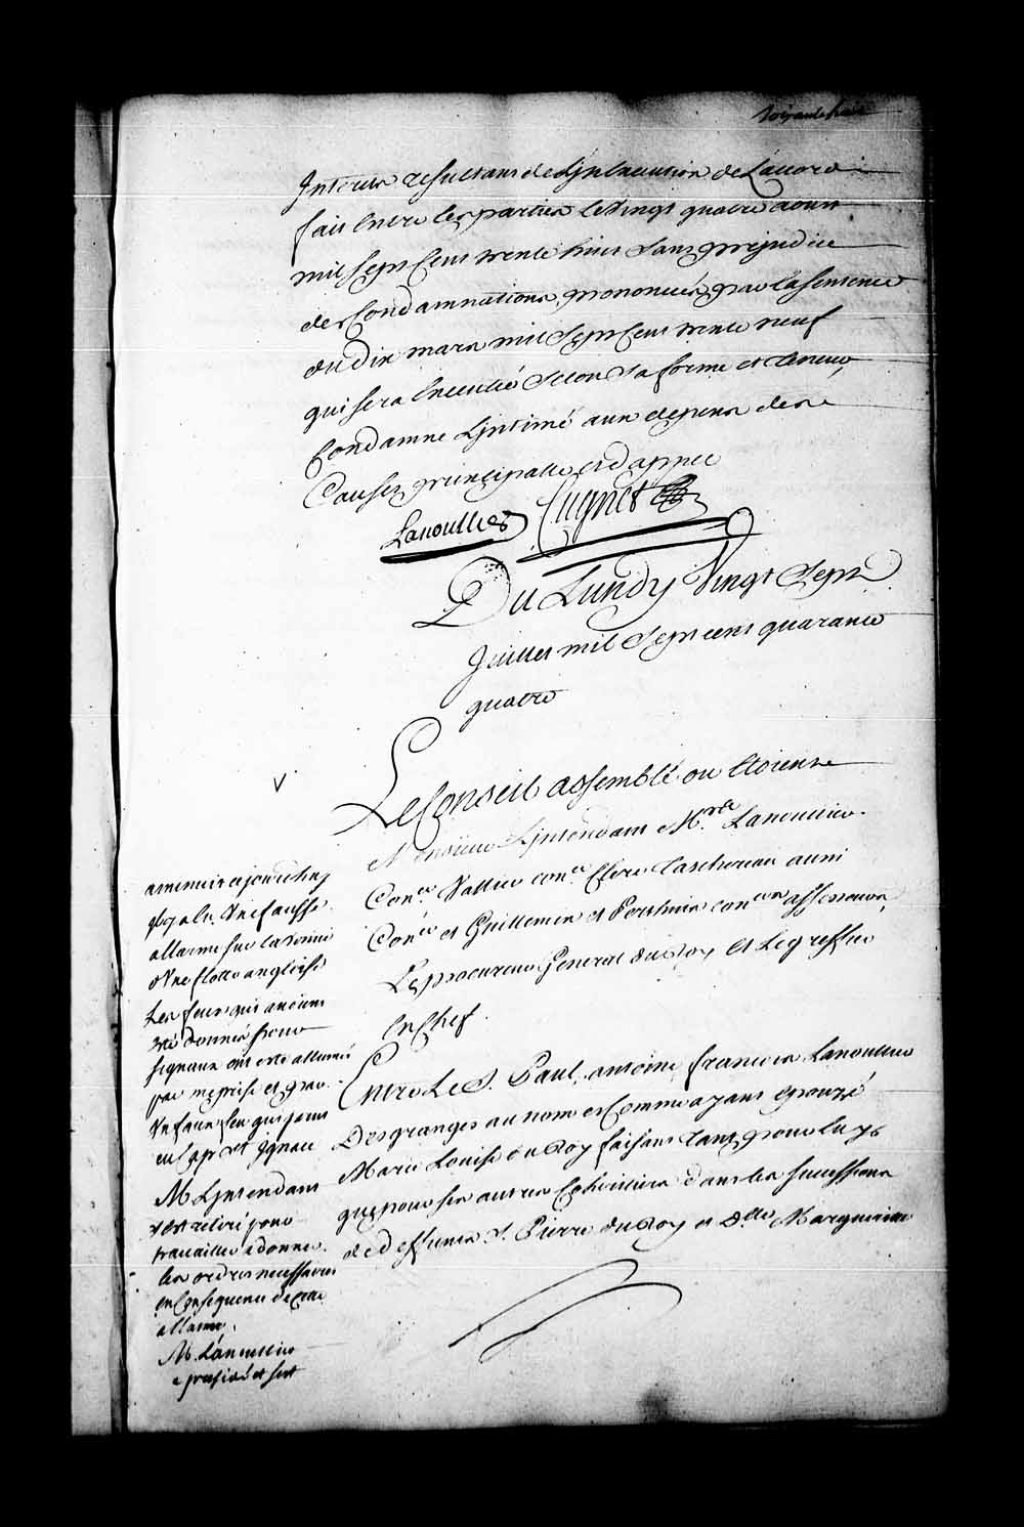 soixante huit
Interets resultans de Linexecution de Laccord
fait Entre les parties le Vingt quatre aoust
mil sept Cent trente huit Sans prejudice
des Condamnations prononcées par la Sentence
du dix mars mil Sept Cent trente neuf
qui sera Executée Selon Sa forme et teneur,
Condamne Lintimé aux depens des
Causes principalle et dappel
Lanoullier Cugnet
Du Lundy Vingt Sept
Juillet mil Sept cent quarante
quatre
Le Conseil assemblé ou Etoient
Monsieur Lintendant Mrs Lanoullier
Coner Vallier coner Clerc Taschereau aussi
Coner et Guillemin et Perthuis coners assesseurs,
Le procureur General du Roy Et Le greffier
En Chef.
Entre Le S. Paul antoine francois Lanoullier
Desgranges au nom et Comme ayant epousé
Marie Louise du Roy faisant tant pour luy
que pour ses autres Coheritiers dans les successions
de deffunts S. Pierre du Roy et Dlle Marguerite
V
a minuit ce jourdhuy
il y a Eu Une fausse
allarme sur la venue
d'Une flotte angloise
Les feux qui avoient
été donnés pour
signaux ont esté allumés
par meprise et par
Un faux feu qui parut
au Cap St Ignace
M Lintendant
s'est retiré pour
travailler a donner
les ordres necessaires
en Consequence de cette
allarme.
M. Lanoullier
a presidé et sert